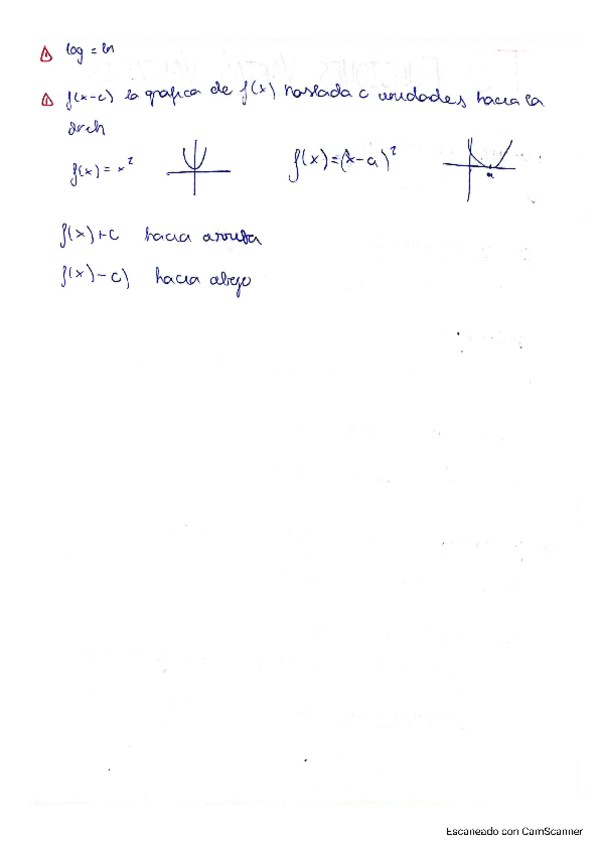 ⚠ log = ln
⚠ f(x-c) la grafica de f(x) traslada c unidades hacia la
drch
f(x) = x² f(x)=(x-a)²
a
f(x)+c hacia arriba
f(x)-c) hacia abajo
Escaneado con CamScanner